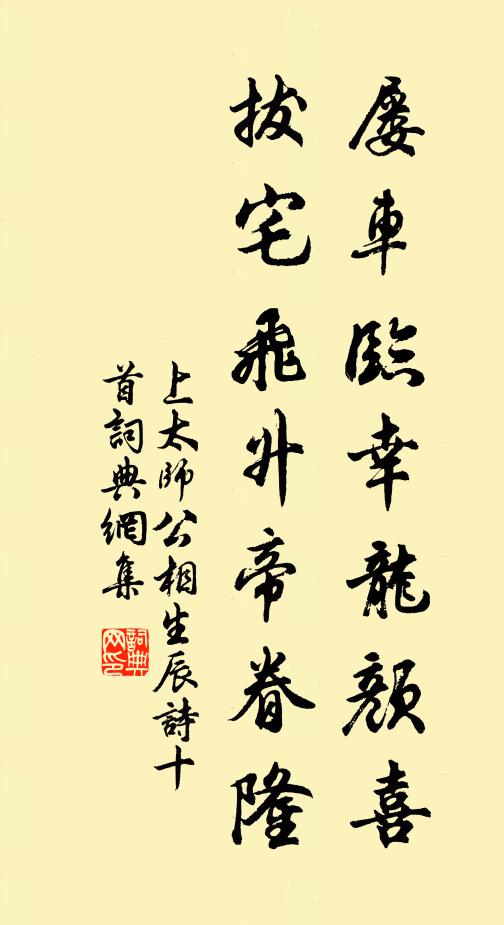 屡車臨幸龍顏喜
拔宅飛升帝眷隆
上太師公相生辰詩十
首詞典網集
詞典
网印